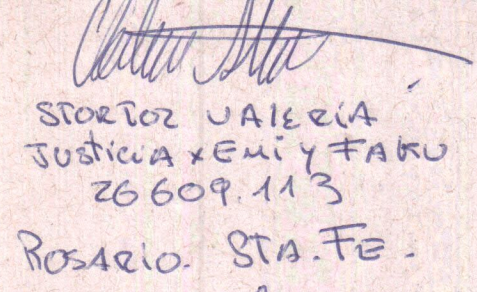 STORTOZ VALERIA
JUSTICIA x EMI y FAKU
26609.113
ROSARIO. STA.FE.